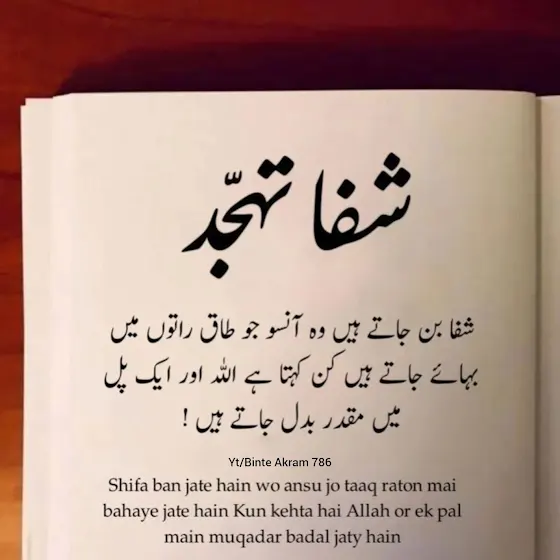 شفا تہجّد
شفا بن جاتے ہیں وہ آنسو جو طاق راتوں میں
بہائے جاتے ہیں کن کہتا ہے اللہ اور ایک پل
میں مقدر بدل جاتے ہیں !
Yt/Binte Akram 786
Shifa ban jate hain wo ansu jo taaq raton mai
bahaye jate hain Kun kehta hai Allah or ek pal
main muqadar badal jaty hain